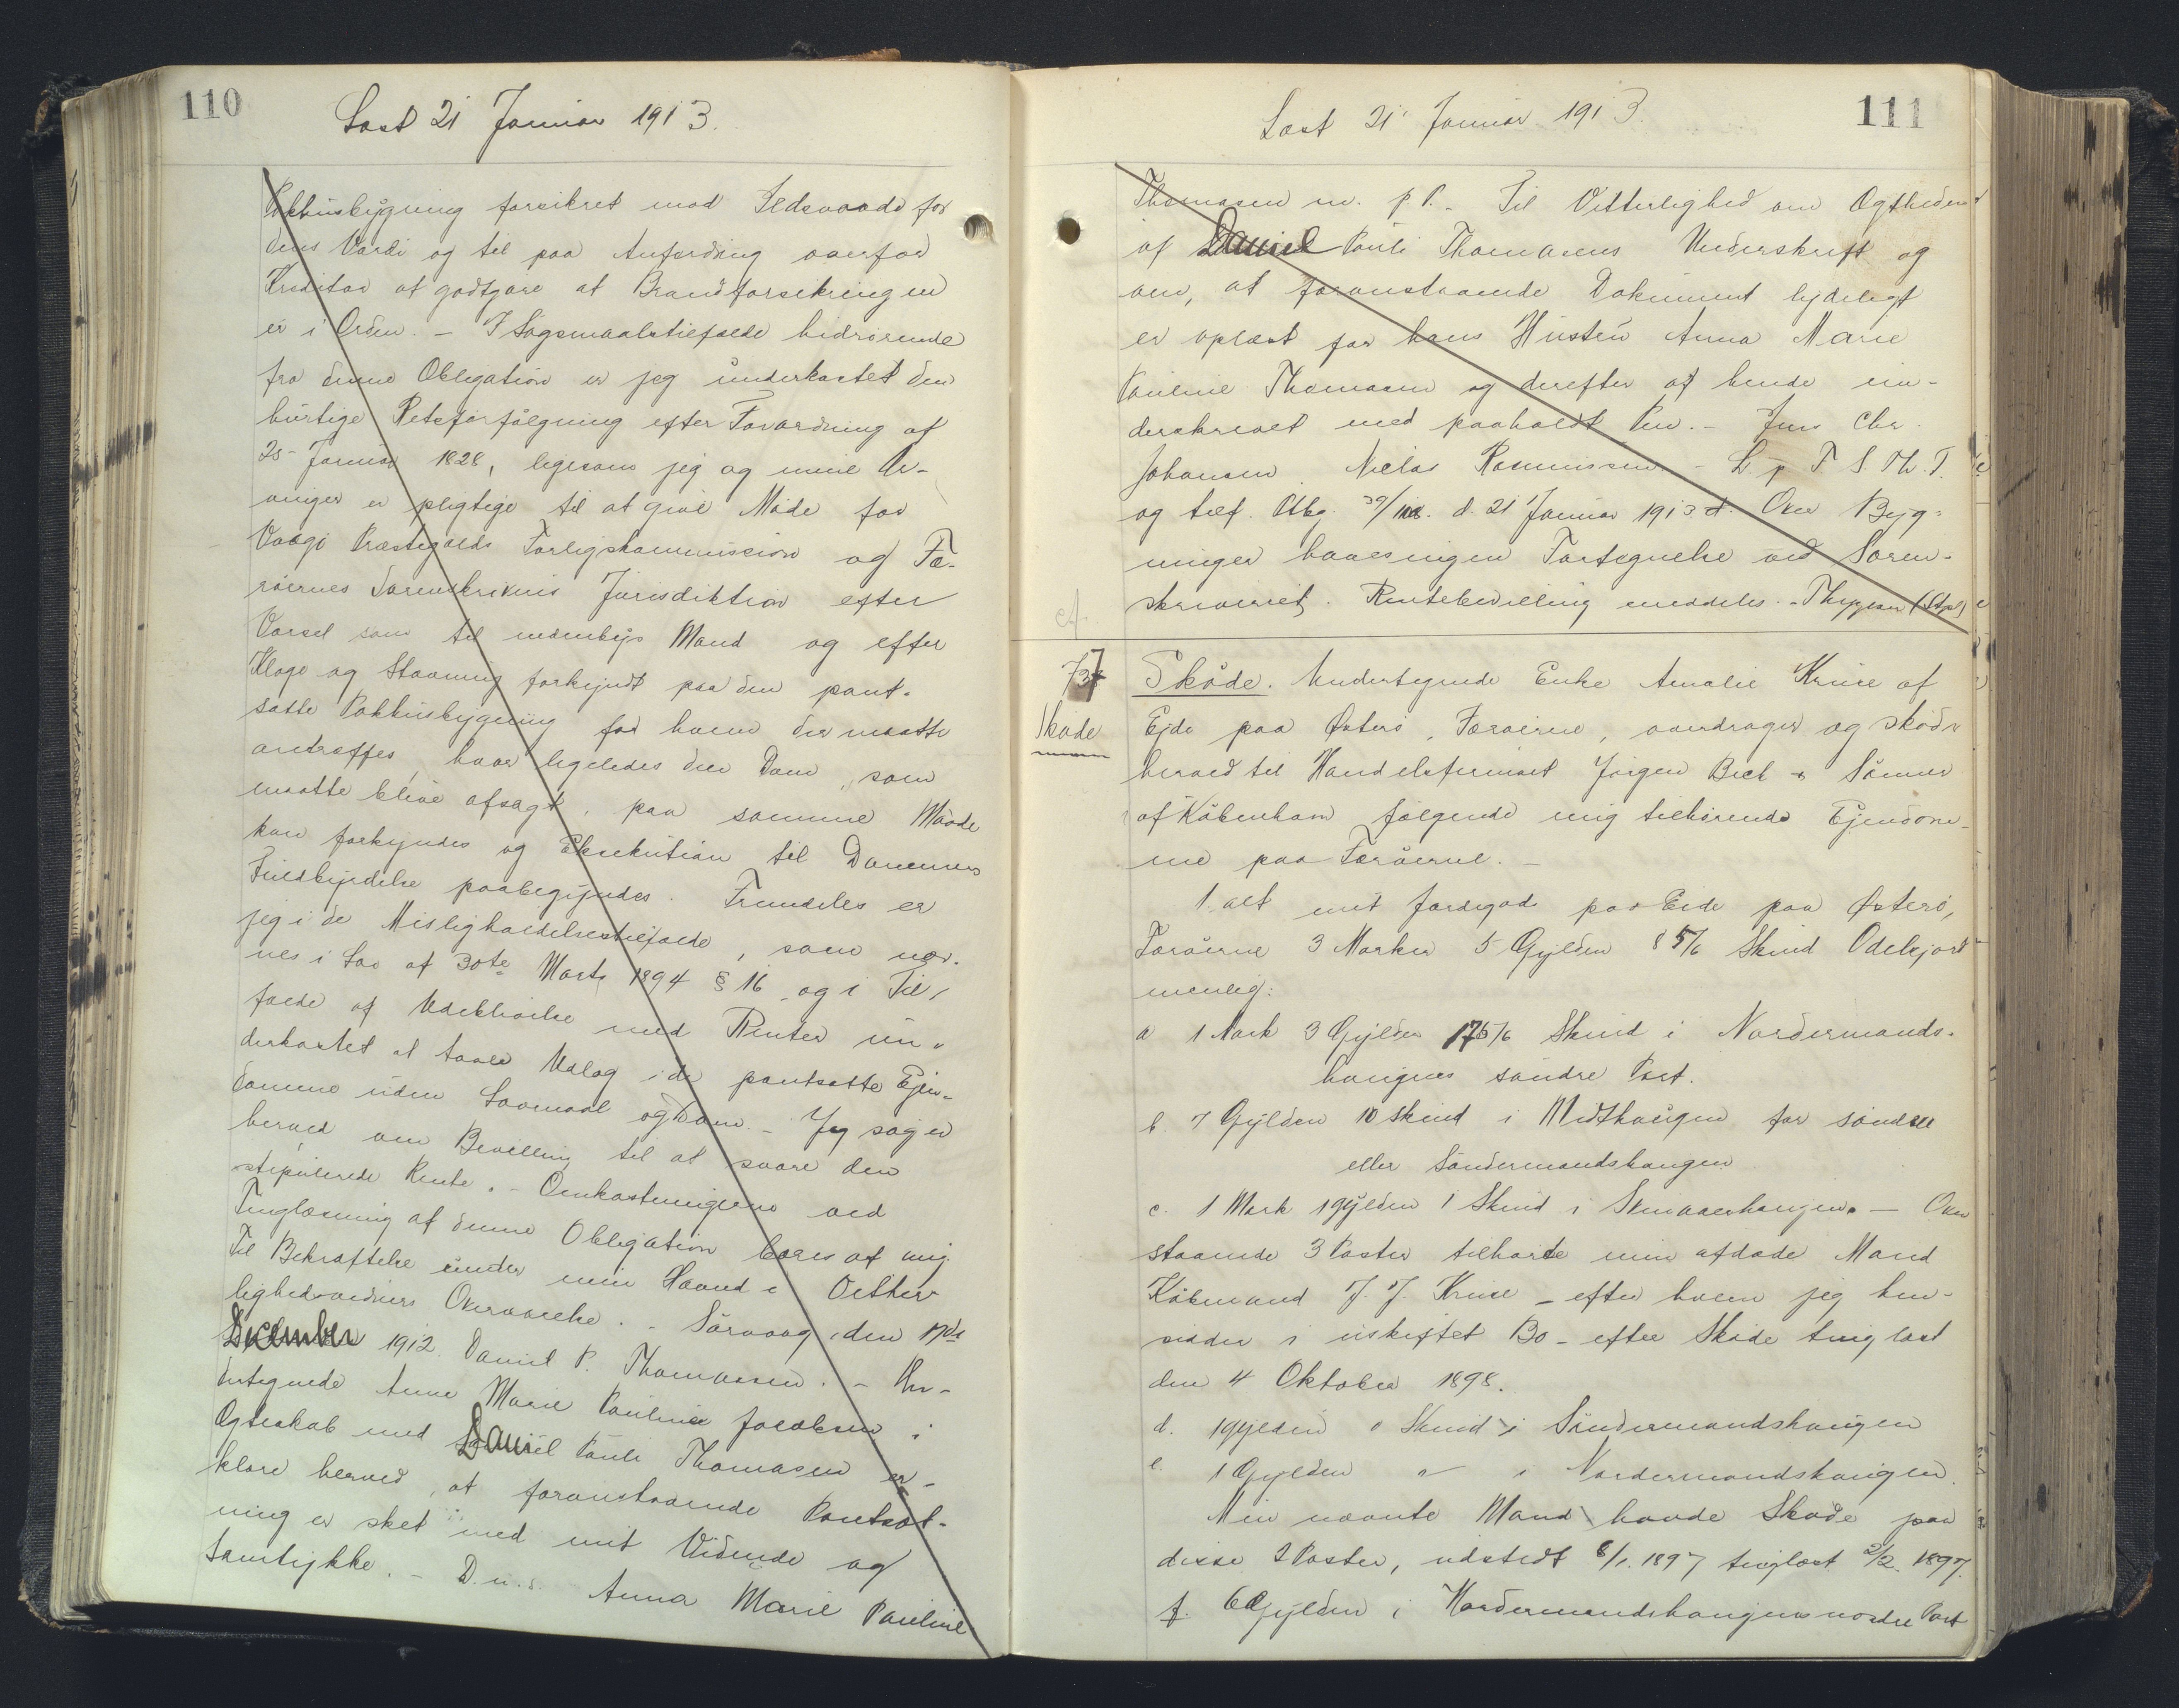 110
Læst 21 Januar 1913.
Pakhusbygning forsikret mod Ildsvaade for
dens Værdi og til paa Anfordring overfor
Kreditor at godtgøre at Brandforsikringen
er i Orden. – I Søgsmaalstilfælde hidrørende
fra denne Obligation er jeg underkastet den
hurtige Retsforfølgning efter Forordning af
25 Januar 1828, ligesom jeg og mine Ar-
vinger er pligtige til at give Møde for
Vaagø Præstegælds Forligskommission og Fæ-
røernes Sorenskriveris Jurisdiktion efter
Varsel som til indenbys Mand og efter
Klage og Stævning forkyndt paa den pant-
satte Pakhusbygning for hvem der maatte
antræffes, hvor ligeledes den Dom, som
maatte blive afsagt, paa samme Maade
kan forkyndes og Eksekution til Dommens
Fuldbyrdelse paabegyndes. Fremdeles er
jeg i de Misligholdelsestilfælde, som næv-
nes i Lov af 30te Marts 1894 § 16 og i Til-
fælde af Udeblivelse med Renter un-
derkastet at taale Udlæg i de pantsatte Ejen-
domme uden Lovmaal og Dom. – Jeg søger
herved om Bevilling til at svare den
stipulerede Rente. – Omkostningerne ved
Tinglæsning af denne Obligation bæres af mig.
Til Bekræftelse under min Haand i Vitter-
lighedsvidners Overværelse. – Sørvaag, den 17de
December 1912. Daniel P. Thomassen. – Un-
dertegnede Anne Marie Pauline Jacobsen i
Ægteskab med Daniel Pauli Thomasen er-
klære herved, at foranstaaende Pantsæt-
ning er sket med mit Vidende og
Samtykke. – D.u.s. Anna Marie Pauline
Læst 21 Januar 1913.
111
Thomasen m. p. P. – Til Vitterlighed om Ægtheden
af Daniel Pauli Thomasens Underskrift og
om, at foranstaaende Dokument lydeligt
er oplæst for hans Hustru Anna Marie
Pauline Thomasen og derefter af hende un-
derskrevet med paaholdt Pen. – Jens Chr.
Johansen. Niclas Rasmussen – L. p F S. Th. T.
og tilf. Atbg. d. 21 Januar 1913 d. Over Byg-
ninger haves ingen Fortegnelse ved Soren-
skriveriet. Rentebevilling meddeles. –
cf.
737
Skøde
Skøde. Undertegnede Enke Amalie Kruse af
Ejde paa Østerø, Færøerne, overdrager og skøder
herved til Handelsfirmaet Jørgen Bech & Sønner
af København følgende mig tilhørende Ejendom-
me paa Færøerne. –
1. alt mit Jordegods paa Eide paa Østerø,
Færøerne 3 Marker 5 Gylden 8 5/6 Skind Odelsjord
nemlig:
a 1 Mark 3 Gylden 17 5/6 Skind i Nordermands-
haugens søndre Part.
b. 7 Gylden 10 Skind i Midthaugen for søndre
eller Søndermandshaugen
c. 1 Mark 1 Gylden 1 Skind i Skinaaerhaugen. – Oven
staaende 3 Poster tilhørte min afdøde Mand
Købmand J. J. Kruse – efter hvem jeg hen-
sidder i uskiftet Bo – efter Skøde tinglæst
den 4 Oktober 1898.
d. 1 Gylden 0 Skind i Søndermandshaugen
e. 1 Gylden " i Nordermandshaugen.
Min nævnte Mand havde Skøde paa
disse 2 Poster, udstedt 8/1. 1897 tinglæst 2/2. 1897.
f. 6 Gylden i Nordermandshaugens nordre Part